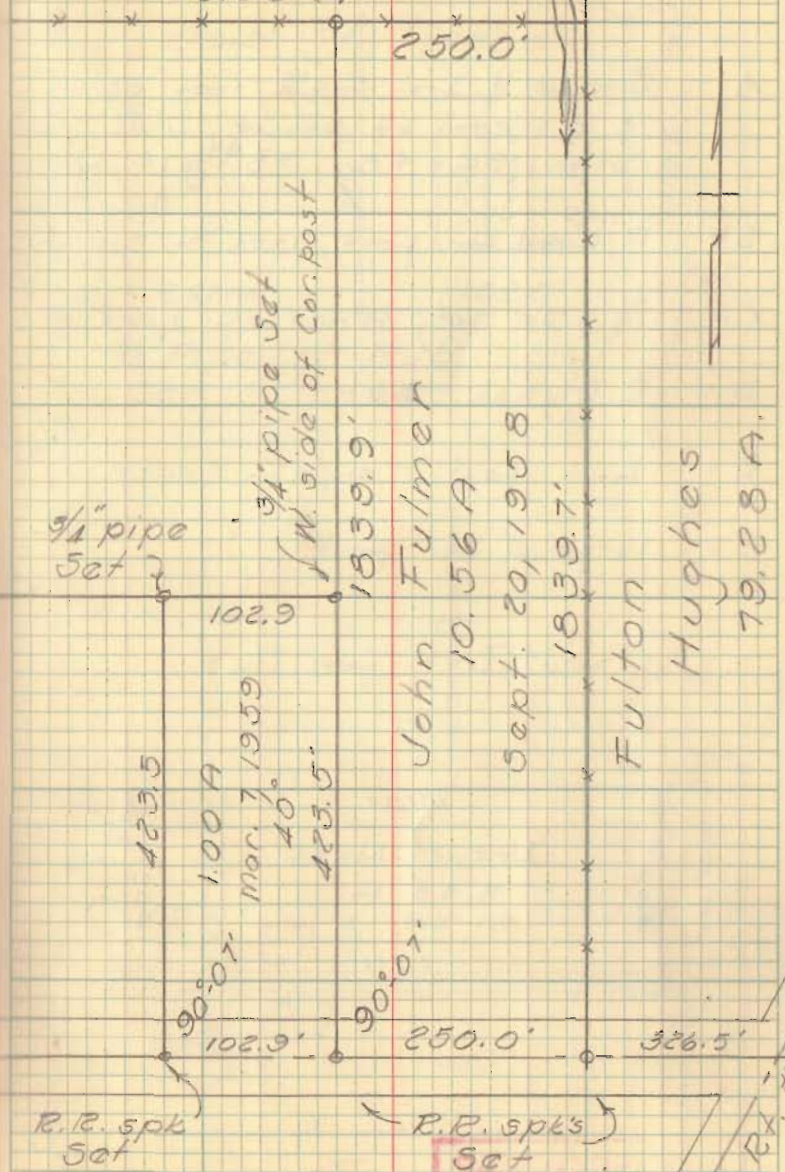 250.0'
3/4" pipe Set
W. side of Cor. post
3/4" pipe
Set
102.9
1839.9'
John Fulmer
10.56 A
Sept. 20, 1958
1839.7'
Fulton
Hughes
79.28 A.
423.5
1.00 A
Mar. 7, 1959
40°
423.5'
90°-07'
90°-07'
102.9'
250.0'
326.5'
R.R. spk
Set
R.R. spks
Set